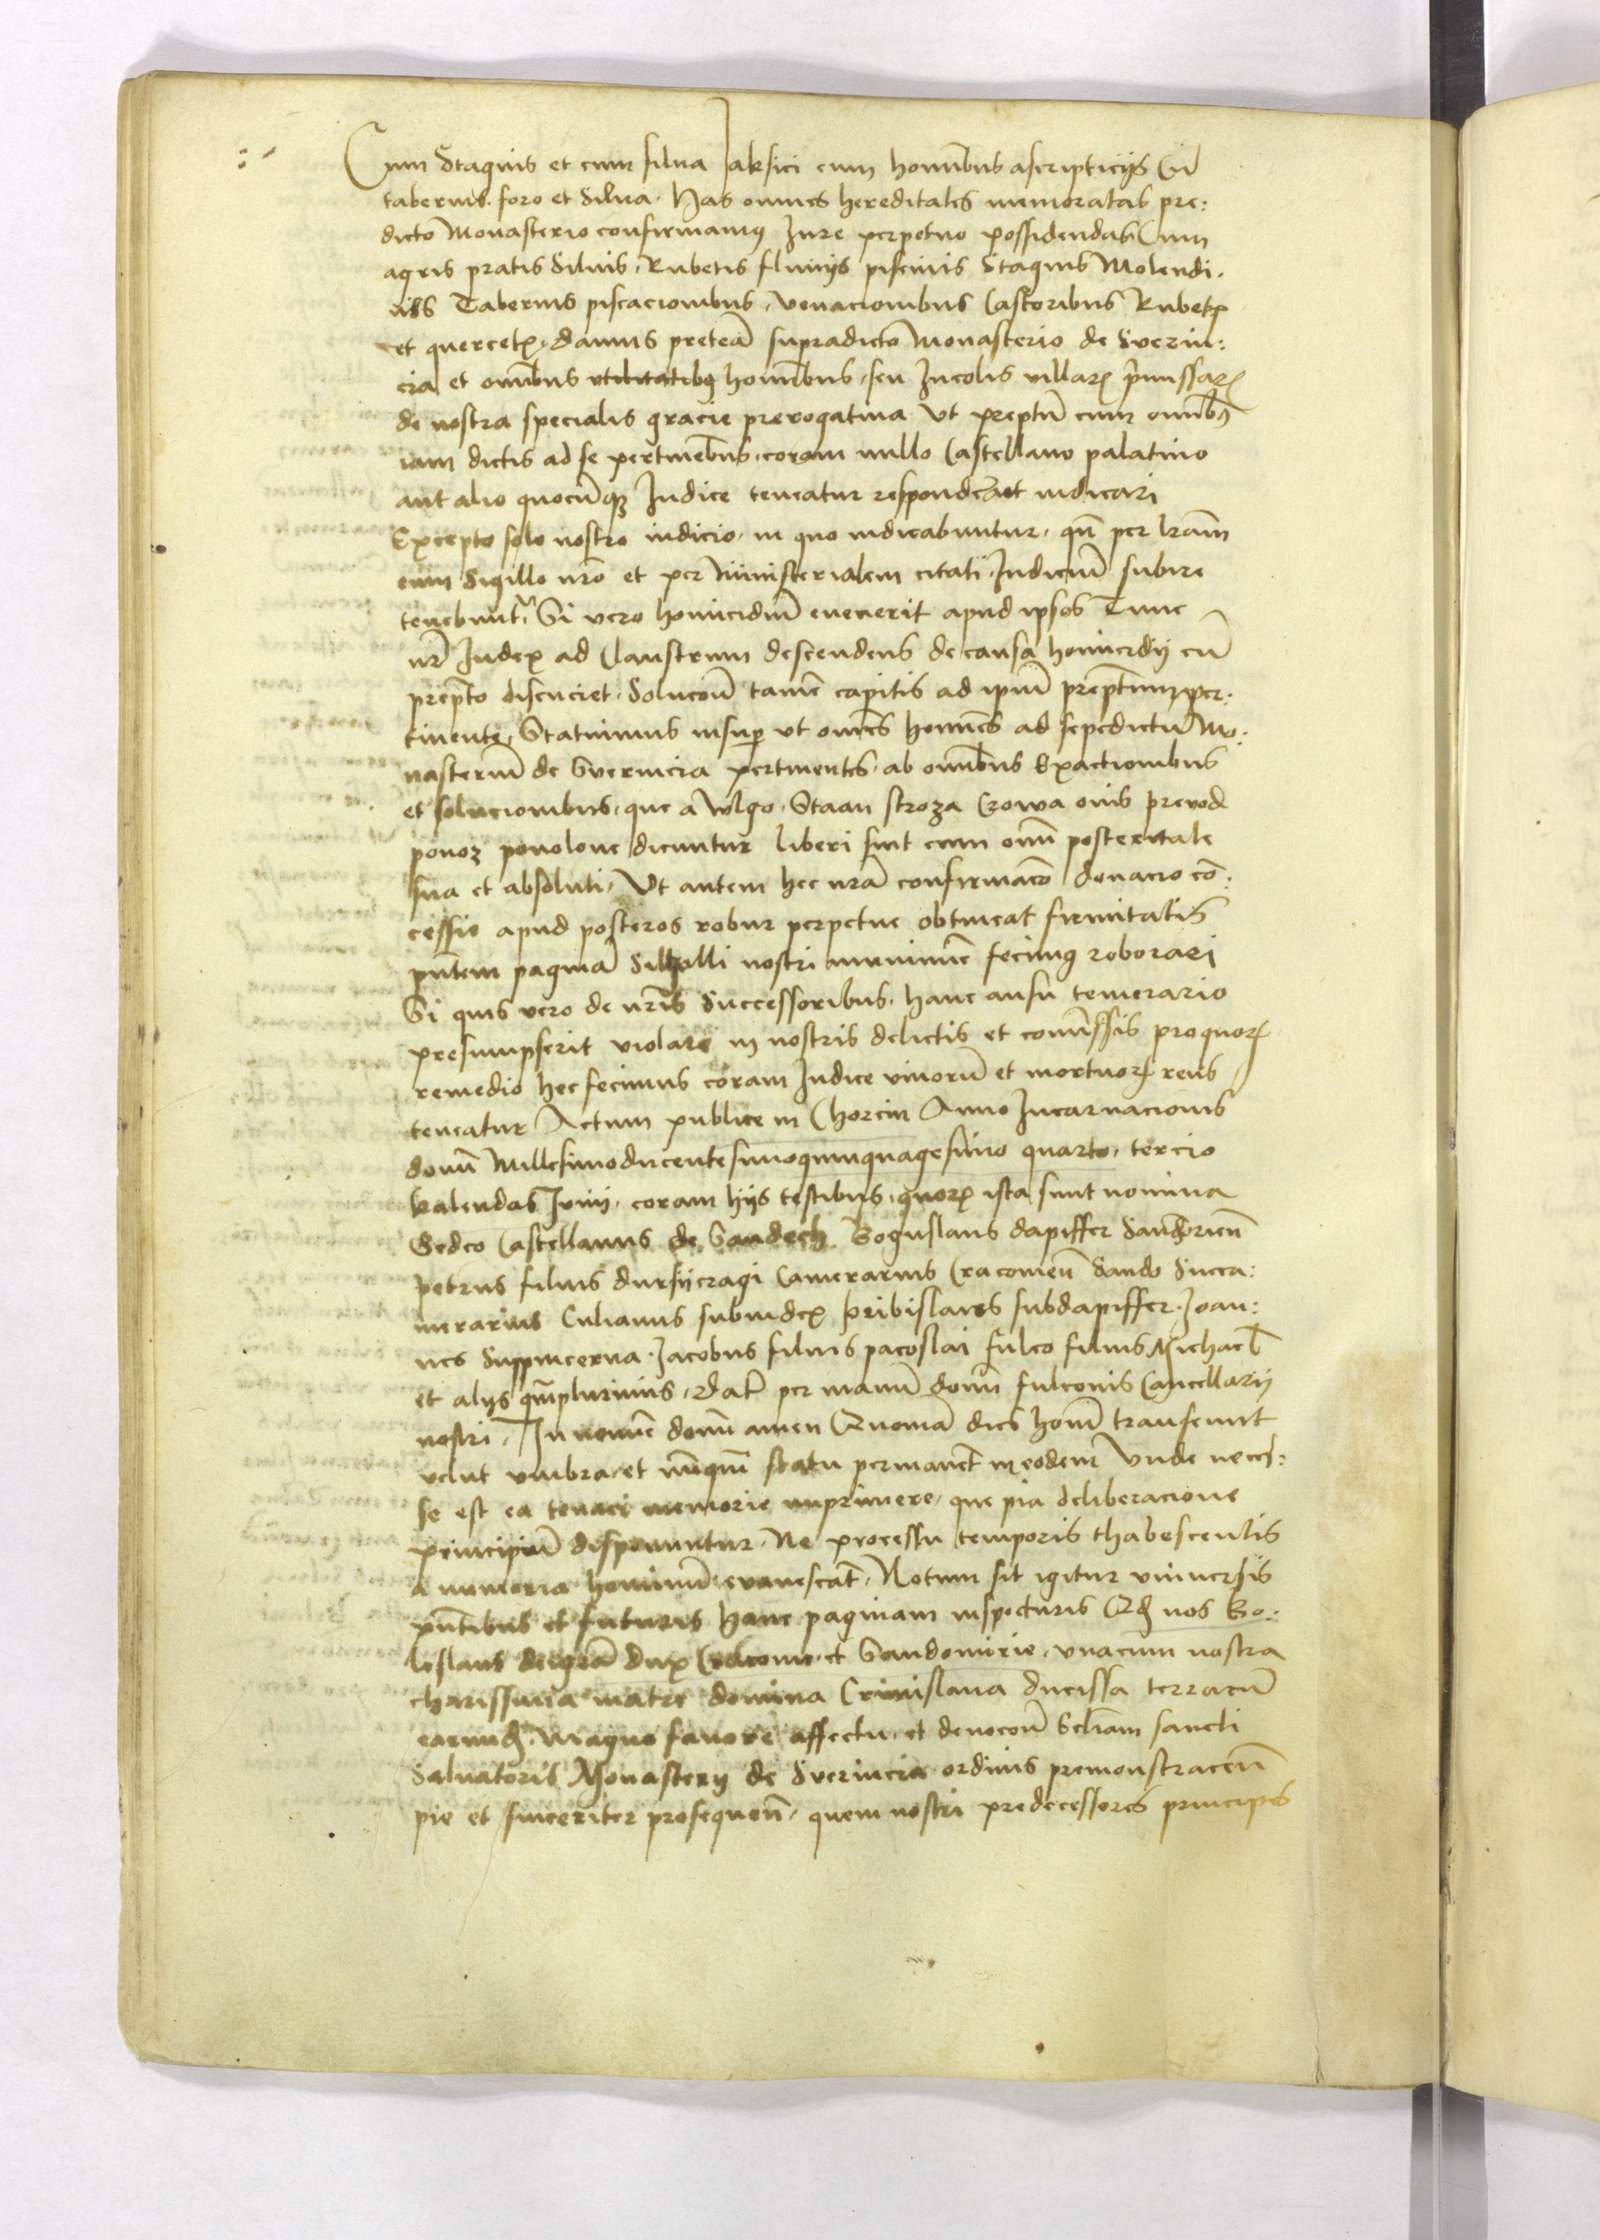 Cum Stagnis et cum silua Jaksici cum homībus ascripticijs Cū
tabernis foro et Silua. Has omnes hereditates memoratas pre:
dicto Monasterio confirmamꝯ Jure perpetuo possidendas Cum
agris pratis Siluis, Rubetis fluuijs piscinis Stagnis Molendi.
nis Tabernis piscacionibus, venacionibus Castoribus Rubetꝭ
et quercetꝭ, damus preteā supradicto Monasterio de Sverin:
cia et omībus vtilitatibꝯ homībus, seu Incolis villaꝝ p̄missaꝝ
de nostra specialis gracie prerogatiua Vt preptū cum omībꝯ
iam dictis ad se pertinēbus, coram nullo Castellano palatino
aut alio quocūqꝫ Judice teneatur respondē aut iudicari
Excepto solo nostro iudicio, in quo iudicabuntur, qn̄ per lr̄am
cum Sigillo nr̄o et per Ministerialem citati Judiciū subire
tenebunt᷑ Si vero homicidiū euenerit apud ipsos Tunc
nr̄ Judex ad Claustrum descendens de causa homicidij cū
prep̄to discuciet, Solucoū tamē capitis ad ipm̄ prep̄tum per:
tinente, Statuimus insup̱ vt omēs homēs ad sepedictū Mo:
nasteriū de Sverincia pertinentes, ab omībus Exactionibus
et solucionibus, que a wlgo, Staan stroza Crowa ouis prevod
povoz povolove dicuntur liberi sint cum omī posteritate
sua et absoluti, Vt autem hec nr̄a confirmacō donacio cō:
cessio apud posteros robur perpetue obtineat firmitatis
pn̄tem paginā Sigilli nostri munimīe fecimꝯ roborari
Si quis vero de nr̄is Successoribus, hanc ausu temerario
presumpserit violare in nostris delictis et comissis pro quoꝝ
remedio hec fecimus coram Judice viuorū et mortuoꝝ reus
teneatur Actum publice in Chorcin Anno Incarnacionis
domī Millesimo ducentesimo quinquagesimo quarto, tercio
kalendas Junij, coram hijs testibus, quoꝝ ista sunt nomina
Gedco Castellanus de Sandech Boguslaus dapiffer Sandoriēn
petrus filius dursijcragi Camerarius Cracouieñ Sando Succa:
merarius Culianus subiudex pribislaus subdapiffer, Joan:
nes Suppincerna, Jacobus filius pacoslai fulco filius Michael̄
et alijs qm̄plurimis, dat̄ per manū domī fulconis Cancellarij
nostri, In nomīe domī amen Quoniā dies homī transeunt
velut vmbra, et nūquā statu permanēt in eodem Vnde neces:
se est ea tenaci memorie imprimere, que pia deliberacione
principiū disponuntur, Ne processu temporis thabescentis
a memoria hominū evanescāt, Notum sit igitur vniuersis
pn̄tibus et futuris hanc paginam inspecturis Qꝫ nos Bo:
leslaus dei grā dux Cracouie, et Sandomirie, vnacum nostra
charissima matre domina Crimislaua ducissa terrarū
earundꝫ, Magno fauore affectu, et deuocoū Ecl̄iam sancti
Saluatoris Monasterij de Sverincia ordinis premonstraceñ
pie et sinceriter prosequeñ, quem nostri predecessores principes